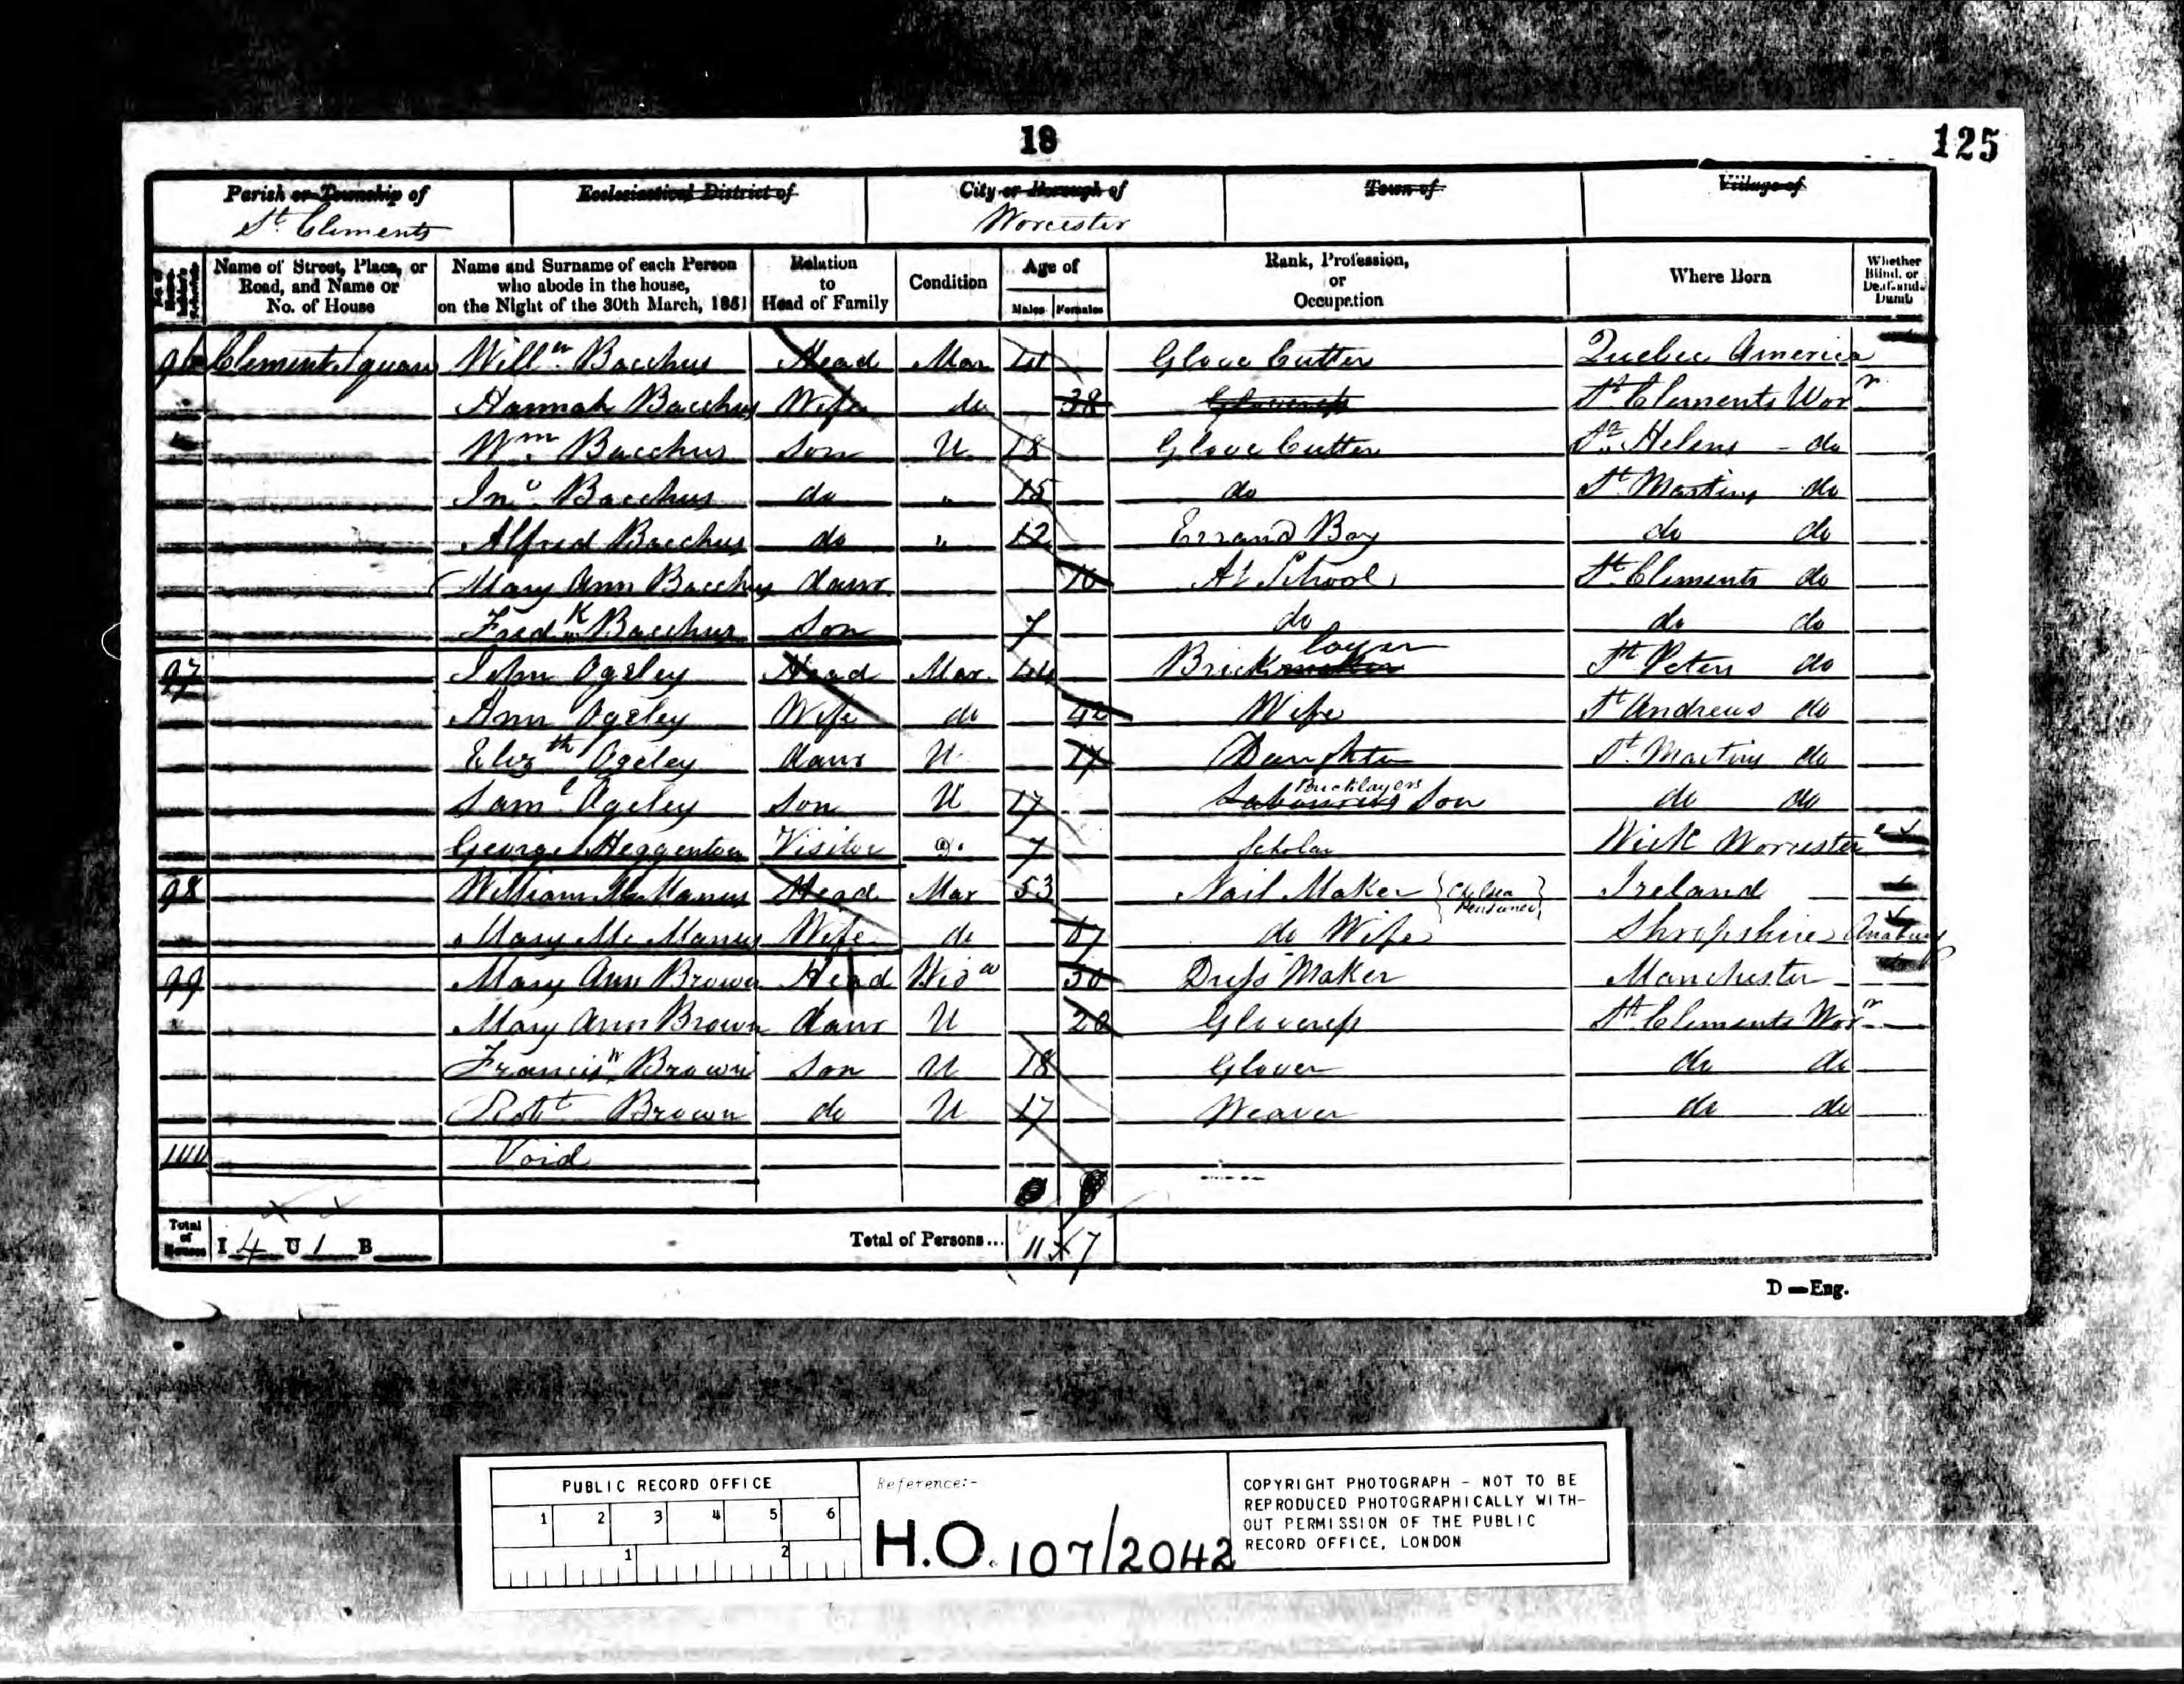 18
125
Parish or Township of
St Clements
Ecclesiastical District of
City or Borough of
Worcester
Town of
Village of
Name of Street, Place, or Road, and Name or No. of House
Name and Surname of each Person who abode in the house, on the Night of the 30th March, 1851
Relation to Head of Family
Condition
Age of
Males Females
Rank, Profession, or Occupation
Where Born
Whether Blind, or Deaf-and-Dumb
96 Clement Square Willm Bacchus Head Mar 41 Glove Cutter Quebec America
Hannah Bacchus Wife do 38 Gloveress St Clements Worr
Wm Bacchus Son U 18 Glove Cutter St Helens - do
Jno Bacchus do " 15 do St Martins do
Alfred Bacchus do " 12 Errand Boy do do
Mary Ann Bacchus daur 10 At School St Clements do
Fredk Bacchus Son 7 do do do
97 John Ogeley Head Mar 44 Brickmaker layer St Peters do
Ann Ogeley Wife do 42 Wife St Andrews do
Elizth Ogeley daur U Daughter St Martins do
Saml Ogeley Son U 17 Labourers Bricklayers Son do do
George Heggenton Visitor 7 Scholar Wick Worcester
98 William McManus Head Mar 53 Nail Maker {Chelsea Pensioner} Ireland
Mary McManus Wife do 57 do Wife Shropshire
99 Mary Ann Brown Head Widw 50 Dress Maker Manchester
Mary Ann Brown daur U 20 Gloveress St Clements Worr
Francis W Brown Son U 18 Glover do do
Robt Brown do U 17 Weaver do do
100 Void
Total of Houses I 4 U 1 B
Total of Persons... 11 7
D—Eng.
PUBLIC RECORD OFFICE
1 2 3 4 5 6
1 2
Reference:-
H.O. 107/2042
COPYRIGHT PHOTOGRAPH - NOT TO BE
REPRODUCED PHOTOGRAPHICALLY WITH-
OUT PERMISSION OF THE PUBLIC
RECORD OFFICE, LONDON